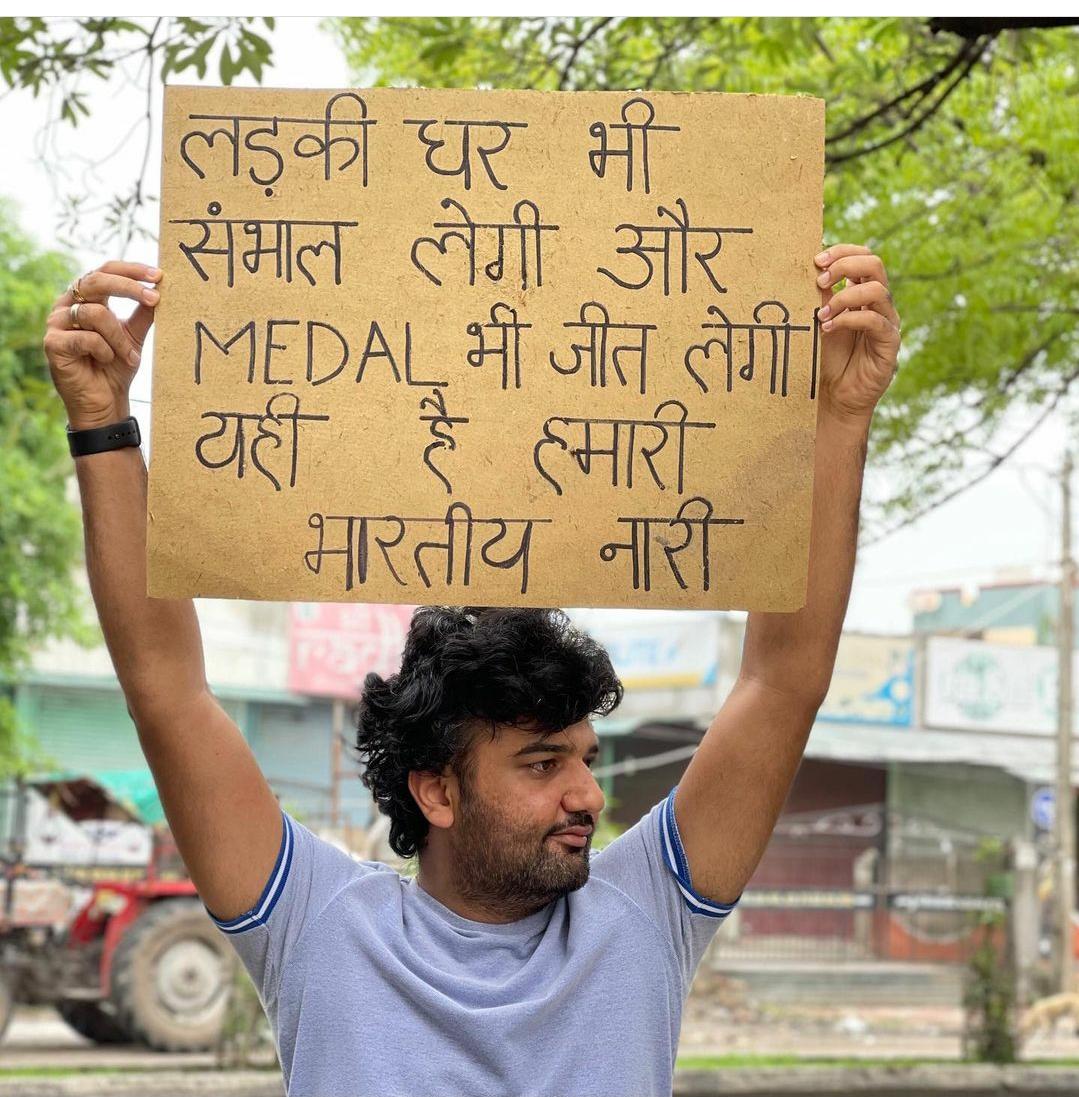 लड़की घर भी
संभाल लेगी और
MEDAL भी जीत लेगी।
यही है हमारी
भारतीय नारी